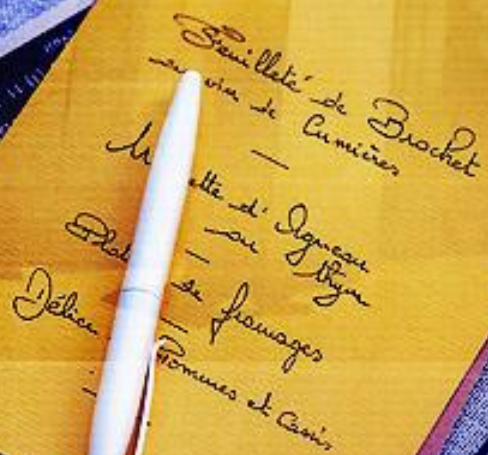 Feuilleté de Brochet
au vin de Cumières
—
N ette d'Agneau
au thym
—
Plat de fromages
—
Délice Pommes et Cassis
—